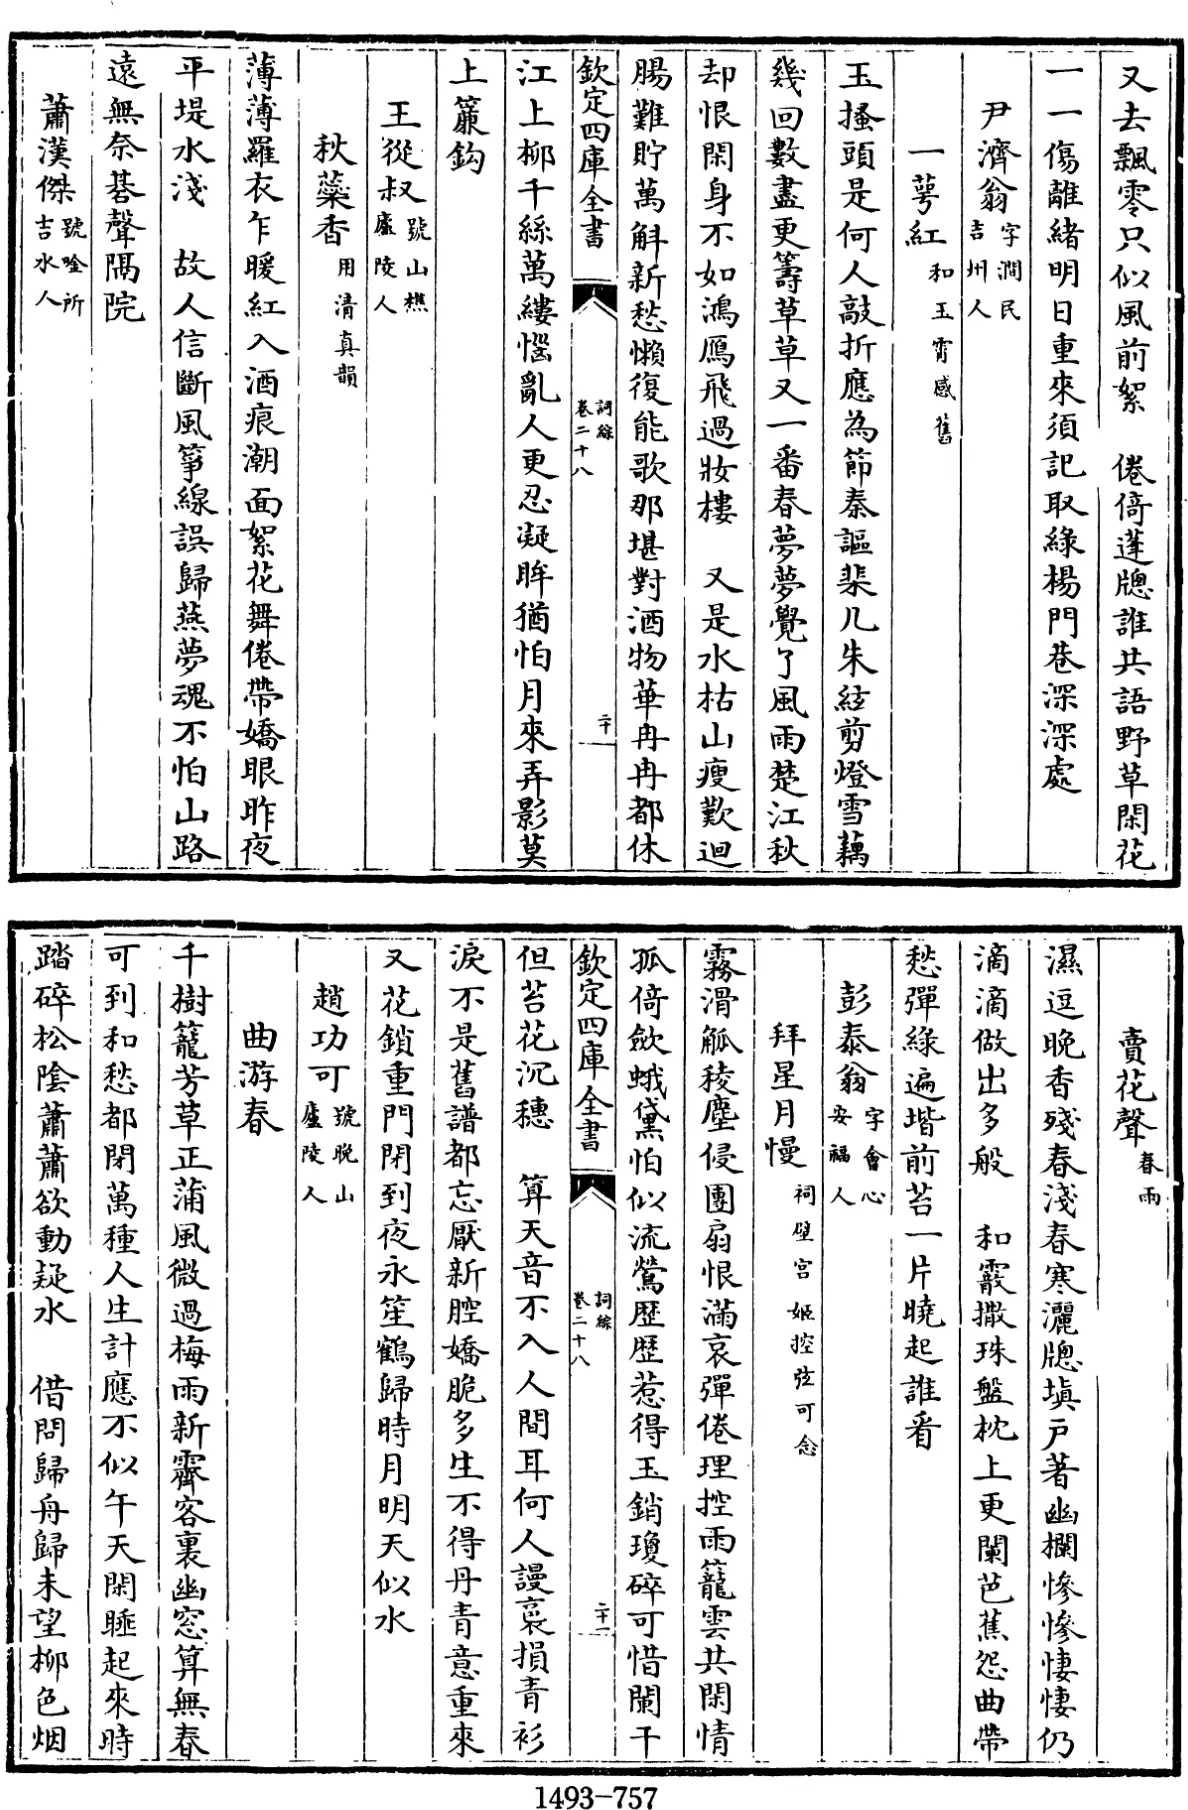 又去飄零只似風前絮　倦倚蓬牕誰共語野草閑花
一一傷離緒明日重來須記取綠楊門巷深深處
尹濟翁字澗民吉州人
一萼紅和玉霄感舊
玉搔頭是何人敲折應為節秦謳棐几朱絃剪燈雪藕
幾回數盡更籌草草又一番春夢夢覺了風雨楚江秋
却恨閑身不如鴻鴈飛過妝樓　又是水枯山瘦歎迴
腸難貯萬斛新愁懶復能歌那堪對酒物華冉冉都休
欽定四庫全書　詞綜卷二十八　二十
江上柳千絲萬縷惱亂人更忍凝眸猶怕月來弄影莫
上簾鈎
王從叔號山樵廬陵人
秋蘂香用清真韻
薄薄羅衣乍暖紅入酒痕潮面絮花舞倦帶嬌眼昨夜
平堤水淺　故人信斷風箏線誤歸燕夢魂不怕山路
遠無奈碁聲隔院
蕭漢傑號唫所吉水人
賣花聲春雨
濕逗晚香殘春淺春寒灑牕塡戶著幽欄慘慘悽悽仍
滴滴做出多般　和霰撒珠盤枕上更闌芭蕉怨曲帶
愁彈綠遍堦前苔一片曉起誰看
彭泰翁字會心安福人
拜星月慢祠壁宫姬控弦可念
霧滑觚稜塵侵團扇恨滿哀彈倦理控雨籠雲共閑情
孤倚斂蛾黛怕似流鶯歴歴惹得玉銷瓊碎可惜闌干
欽定四庫全書　詞綜卷二十八　二十一
但苔花沉穗　算天音不入人間耳何人謾裛損青衫
淚不是舊譜都忘厭新腔嬌脆多生不得丹青意重來
又花鎖重門閉到夜永笙鶴歸時月明天似水
趙功可號晚山廬陵人
曲游春
千樹籠芳草正蒲風微過梅雨新霽客裏幽窓算無春
可到和愁都閉萬種人生計應不似午天閑睡起來時
踏碎松陰蕭蕭欲動疑水　借問歸舟歸未望柳色烟
1493-757